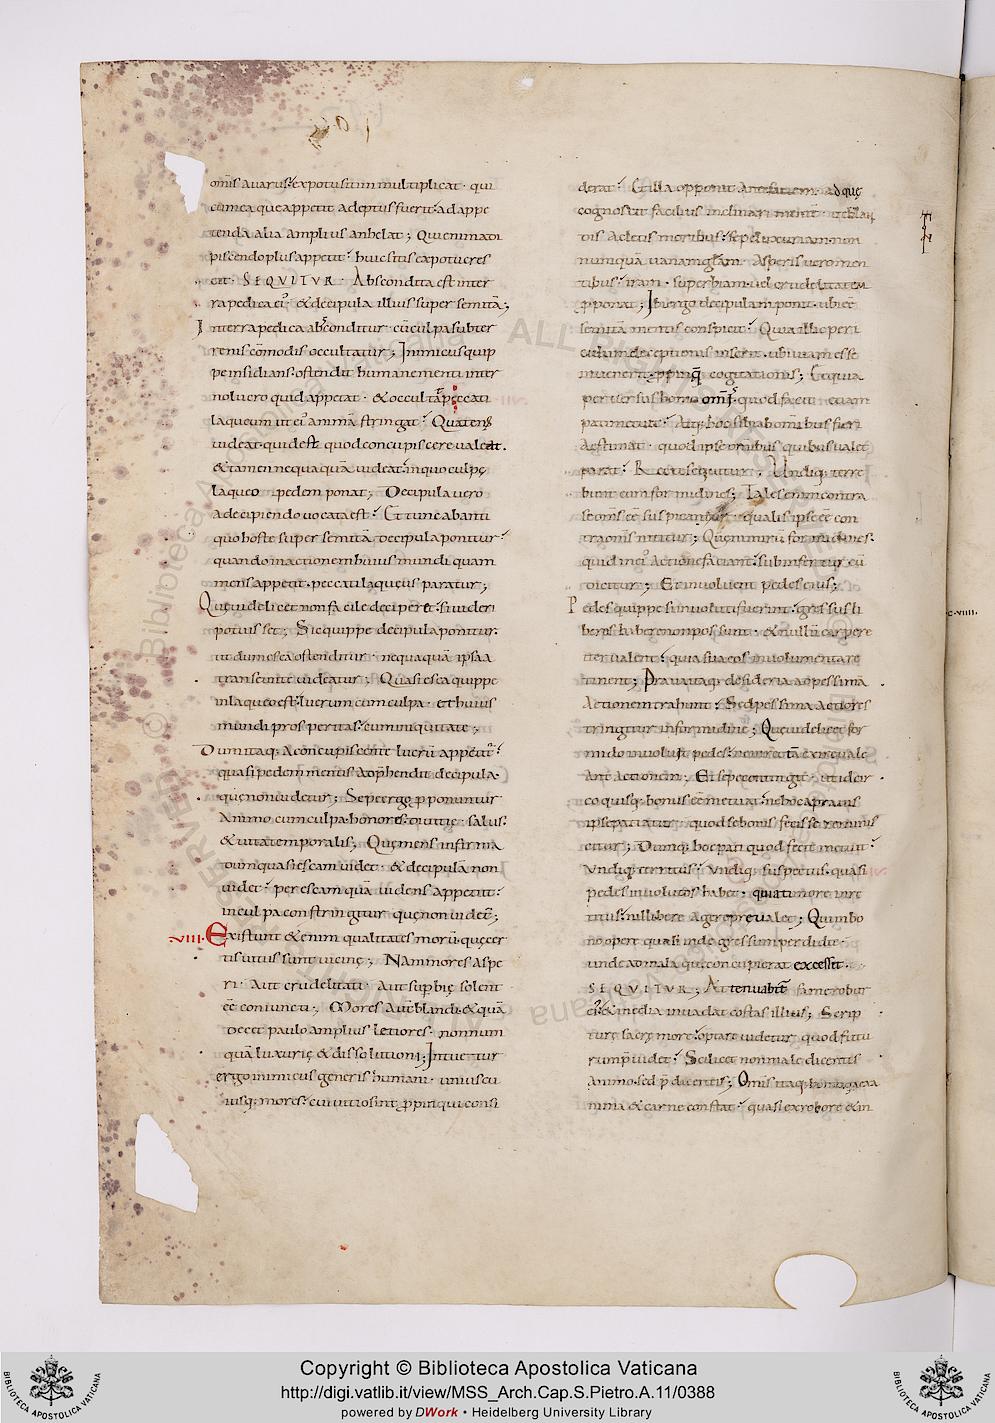 omis auarus expotu sitim multiplicat · qui
cum ea que appetit adeptus fuerit · ad appe
tenda alia amplius anhelat ; Qui enim adi
piscendo plus appetit · huic sitis ex potu cres
cit · SEQVITVR · Abscondita est inter
ra pedica ei' · & decipula illius super semitā ;
Interra pedica absconditur · cū culpa subter
renis cōmodis occultatur ; Inimicus quip
pe insidians · ostendit humane menti inter
no lucro quid appetat · & occultat peccati
laqueum ut ei' animā stringat · Quatens
uideat · quid est quod concupiscere ualeat ·
& tamen nequaquā uideat · in quo culpę
laqueo pedem ponat ; Decipula uero
a decipiendo uocata est · Et tunc ab anti
quo hoste super semitā decipula ponitur ·
quando in actionem huius mundi quam
mens appetit · peccati laqueus paratur ;
Que uidelicet non facile deciperet · si uideri
potuisset ; Sic quippe decipula ponitur ·
ut dum esca ostenditur · nequaquā ipsa a
transeunte uideatur ; Quasi esca quippe
in laqueo est · lucrum cum culpa · et huius
mundi prosperitas · cum iniquitate ;
Dum itaq; a concupiscente lucrū appetit' ·
quasi pedem mentis adp̄hendit decipula ·
quę non uidetur ; Sepe ergo ꝓponuntur
animo cum culpa honores · diuitię · salus ·
& uita temporalis ; Quę mens infirma
dum quasi escam uidet · & decipulā non
uidet · per escam quā uidens appetit ·
in culpa constringitur quę non uidet̄ ;
·VIII· Existunt & enim qualitates morū · quę cer
tis uitiis sunt uicinę ; Nam mores aspe
ri · aut crudelitati · aut supbię solent
eē coniuncti ; Mores aut̄ blandi · & quā
decet paulo amplius letiores · nonnum
quā luxurię & dissolutioni ; Intuetur
ergo inimicus generis humani · uniuscu
iusq; mores · cui uitio sint ꝓpinqui consi
derat · Et illa opponit ante faciem · ad quę
cognoscit facilius inclinari mentē · ut blan
dis ac letis moribus · sepe luxuriam non
nunquā uanam glām · Asperis uero men
tibus · iram · superbiam · uel crudelitatem
ꝓponat ; Ibi ergo decipulam ponit · ubi eē
semitā mentis conspicit · Quia illic peri
culum deceptionis inserit · ubi uiam esse
inuenerit ꝓpinq̄ cogitationis ; Et quia
peruersus homo om̄i quod facit · etiam
pati metuit · Atq; hoc sibi ab omībus fieri
aestimat · quod ipse omnibus quibus ualet
parat · Recte sequitur · Undiq; terre
bunt eum formidines ; Tales enim contra
se omīs eē suspicantur · qualis ipse eē con
tra omīs nititur ; Quę nimirū formidines ·
quid in ei' actione faciant · subinfertur cū
dicitur ; Et inuoluent pedes eius ;
Pedes quippe si inuoluti fuerint · gressus li
beros habere non possunt · & nullū carpere
iter ualent · quia sua eos inuolumenta re
tinent ; Praua itaq; desideria ad pessimā
actionem trahunt · Sed pessima actio res
tringitur in formidine ; Que uidelicet for
mido inuoluit pedes · ne in rectā exire uale
ant actionem ; Et sepe contingit · ut idcir
co quisq; bonus eē metuat · ne hoc a prauis
ipse patiatur · quod se bonis fecisse reminis
citur ; Dumq; hoc pati quod fecit metuit ·
undiq; territus · undiq; suspectus · quasi
pedes inuolutos habet · qui a timore inre
titus · nil libere agere preualet ; Quia in bo
no opere quasi inde gressum perdidit ·
unde ad mala quę concupierat excessit ·
SEQVITVR ; Attenuabit̄ fame robur
ei' & inedia inuadat costas illius ; Scrip
turę sacrę more · optare uidetur quod futu
rum p̄uidet · Scilicet non maledicentis
animo · sed p̄dicentis ; Omīs itaq; homo quia ex a
nima & carne constat · quasi ex robore & in
c·VIIII·
Copyright © Biblioteca Apostolica Vaticana
http://digi.vatlib.it/view/MSS_Arch.Cap.S.Pietro.A.11/0388
powered by DWork • Heidelberg University Library